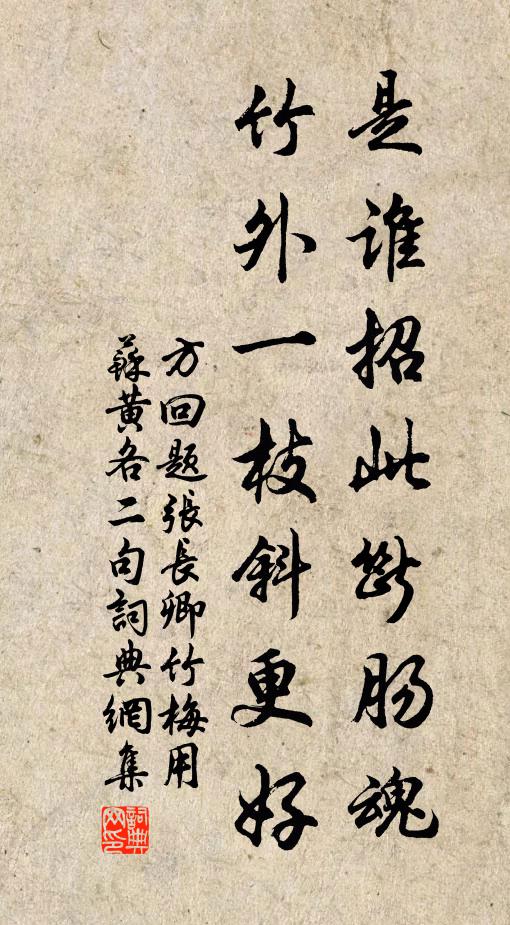 是谁招此斷肠魂
竹外一枝斜更好
方回题張長卿竹梅用
蘇黄各二句詞典網集
詞典
网印